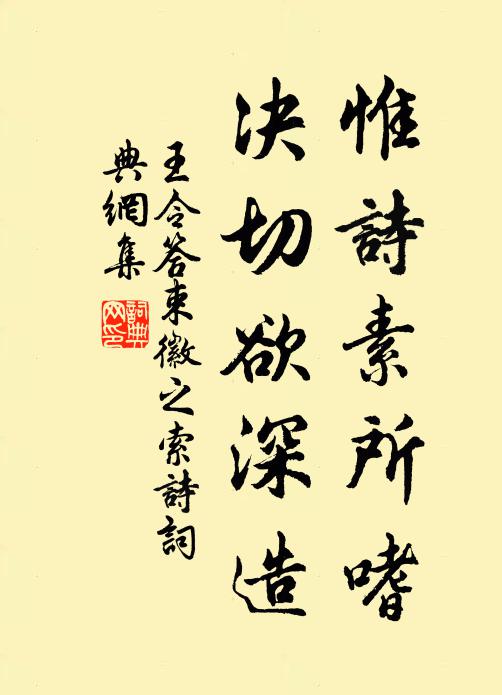 惟詩素所嗜
决切欲深造
王令答束徽之索詩詞
典網集
詞典網印